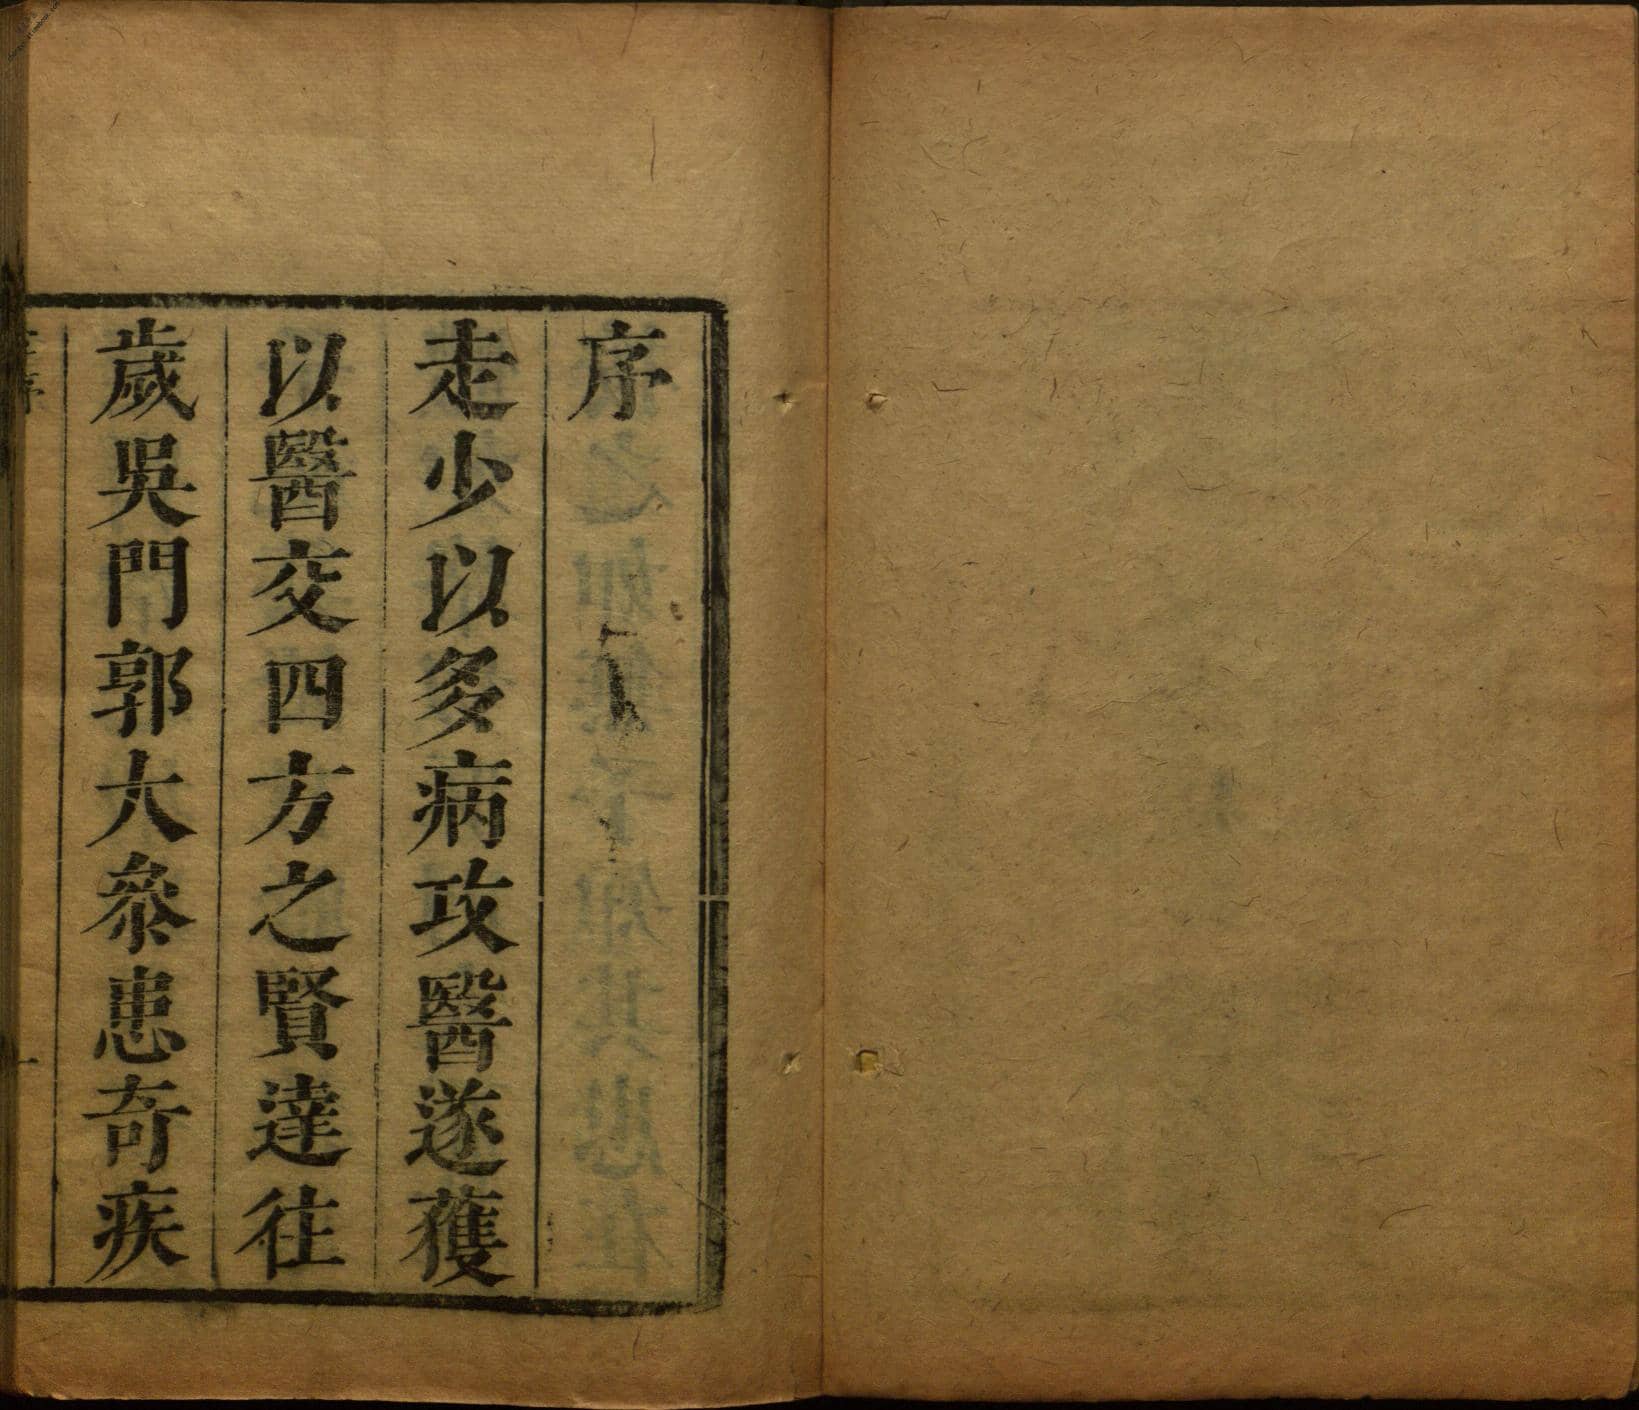 序
走少以多病攻醫遂獲
以醫交四方之賢達往
歲吳門郭大叅患奇疾